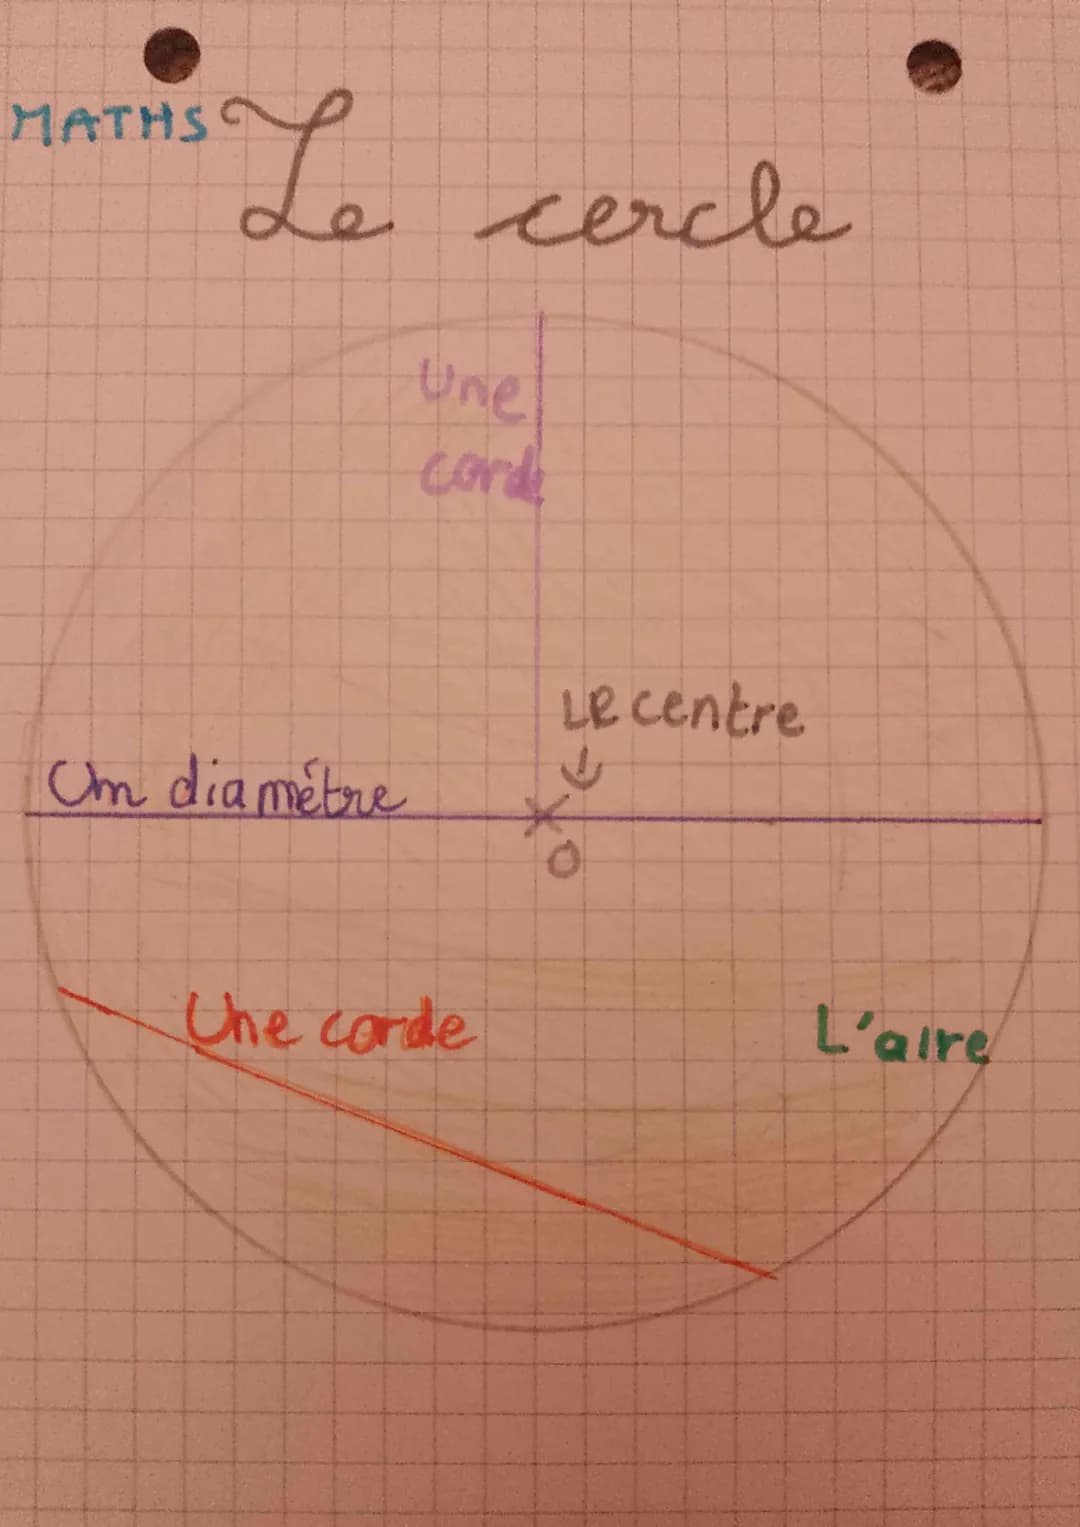 MATHS
Le cercle
Une
corde
Le centre
Un diamétre
O
Une corde
L'aire